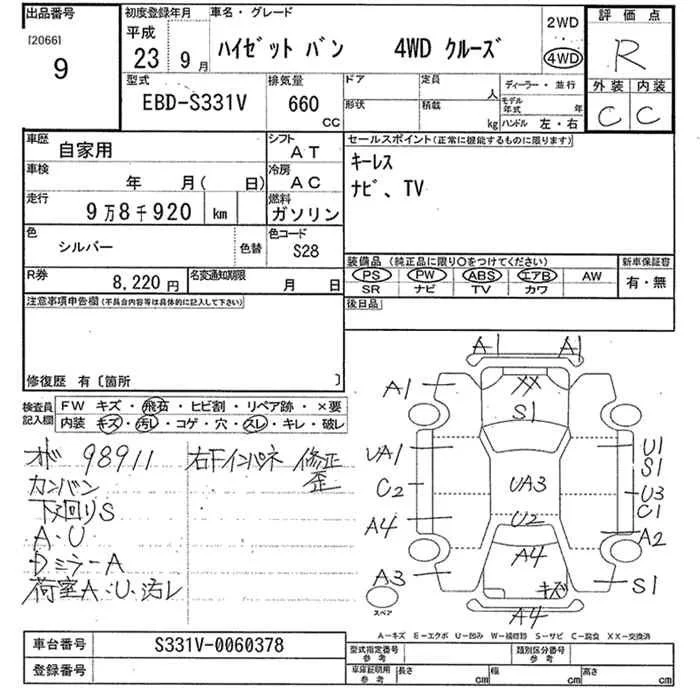 出品番号
[2066]
9
初度登録年月
平成
23 9月
車名・グレード
ハイゼット バン 4WD クルーズ
2WD
4WD
評価点
R
外装 内装
C C
型式
EBD-S331V
排気量
660
CC
ドア
形状
定員
人
積載
kg
ディーラー・並行
モデル年式 年
ハンドル 左・右
車歴
自家用
シフト
AT
車検
年 月( 日)
冷房
AC
走行
9万8千920 km
燃料
ガソリン
色
シルバー
色替
色コード
S28
R券
8,220円
名変通知期限
月 日
セールスポイント(正常に機能するものに限ります)
キーレス
ナビ、TV
装備品 (純正品に限り○をつけてください)
PS PW ABS エアB AW
SR ナビ TV カワ
新車保証書
有・無
後日品
注意事項申告欄(不具合内容等は具体的に記入して下さい)
修復歴 有〔箇所 〕
検査員記入欄
FW キズ・飛石・ヒビ割・リペア跡・×要
内装 キズ・汚レ・コゲ・穴・スレ・キレ・破レ
オド 98911
カンバン
下廻りS
A・U
Dミラー A
荷室A・U・汚レ
右下インパネ 修正
歪
A1 A1
A1
XX
S1
UA1
U1
S1
C2
UA3
U3
C1
U2
A4
A2
A4
A3
キズ
S1
A4
スペア
A-キズ E-エクボ U-凹み W-補修跡 S-サビ C-腐食 XX-交換済
車台番号
S331V-0060378
登録番号
型式指定番号
参考
類別区分番号
参考
車庫証明用
参考
長さ cm 幅 cm 高さ cm